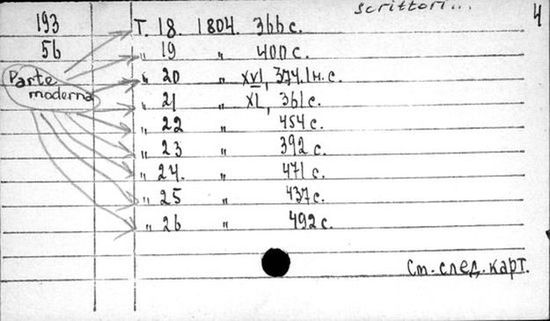 scrittori...
4
193 Т. 18. 1804. 366 с.
56 „ 19 „ 400 с.
Parte moderna
„ 20 „ XVI, 374.1н. с.
„ 21 „ XL, 361с.
„ 22 „ 454 с.
„ 23 „ 392 с.
„ 24. „ 471 с.
„ 25 „ 437с.
„ 26 „ 492 с.
См. след. карт.